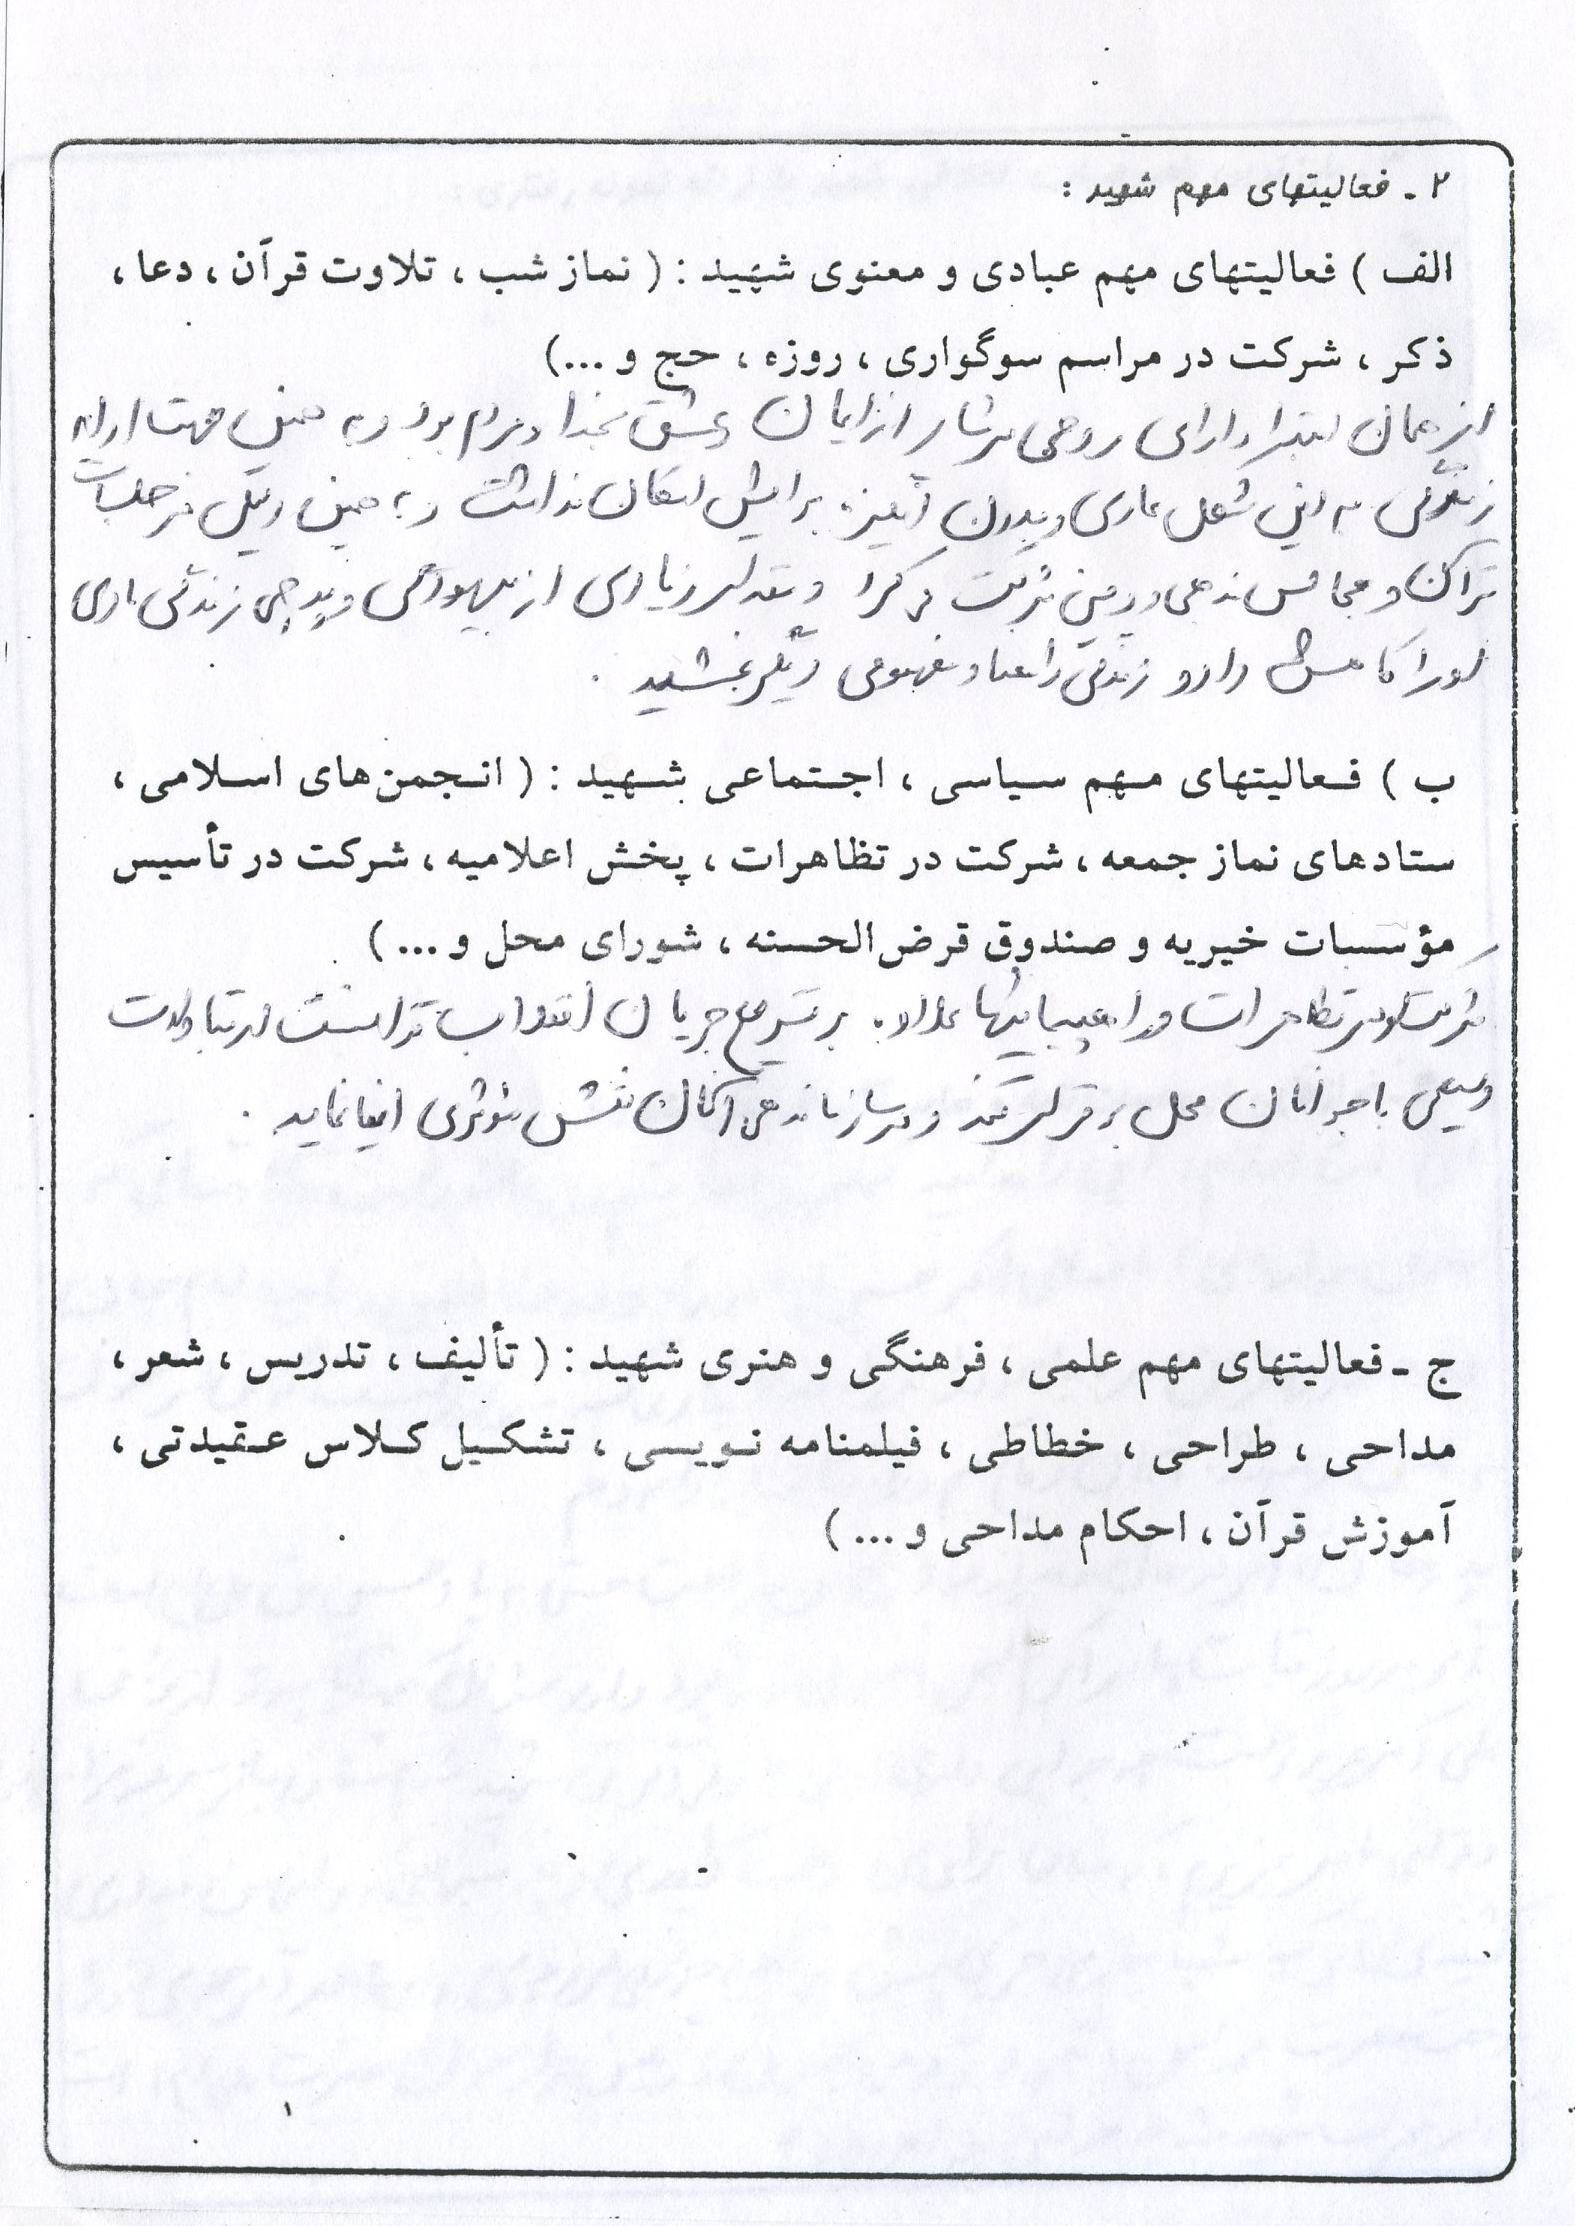 ۲ ـ فعالیتهای مهم شهید :
الف ) فعالیتهای مهم عبادی و معنوی شهید : ( نماز شب ، تلاوت قرآن ، دعا ،
ذکر ، شرکت در مراسم سوگواری ، روزه ، حج و ...)
از همان ابتدا دارای روحی سرشار از ایمان و عشق بخدا و مردم بود و به همین جهت ادامه
زندگی به این شکل عادی و بدون انگیزه برایش امکان نداشت و به همین دلیل در جلسات
قرآن و مجالس مذهبی و دینی شرکت می کرد و بقدر زیادی از بیهودگی و پوچی زندگی مادی
او را کاهش داد و زندگی را معنا و مفهومی دیگر بخشید .
ب ) فعالیتهای مهم سیاسی ، اجتماعی شهید : ( انجمن‌های اسلامی ،
ستادهای نماز جمعه ، شرکت در تظاهرات ، پخش اعلامیه ، شرکت در تأسیس
مؤسسات خیریه و صندوق قرض‌الحسنه ، شورای محل و ... )
شرکت در تظاهرات و راهپیمایها علاوه بر تسریع جریان انقلاب توانست ارتباطات
وسیعی با جوانان محل برقرار کند و در سازماندهی آنان نقش مؤثری ایفا نماید .
ج ـ فعالیتهای مهم علمی ، فرهنگی و هنری شهید : ( تألیف ، تدریس ، شعر ،
مداحی ، طراحی ، خطاطی ، فیلمنامه نویسی ، تشکیل کلاس عقیدتی ،
آموزش قرآن ، احکام مداحی و ... )